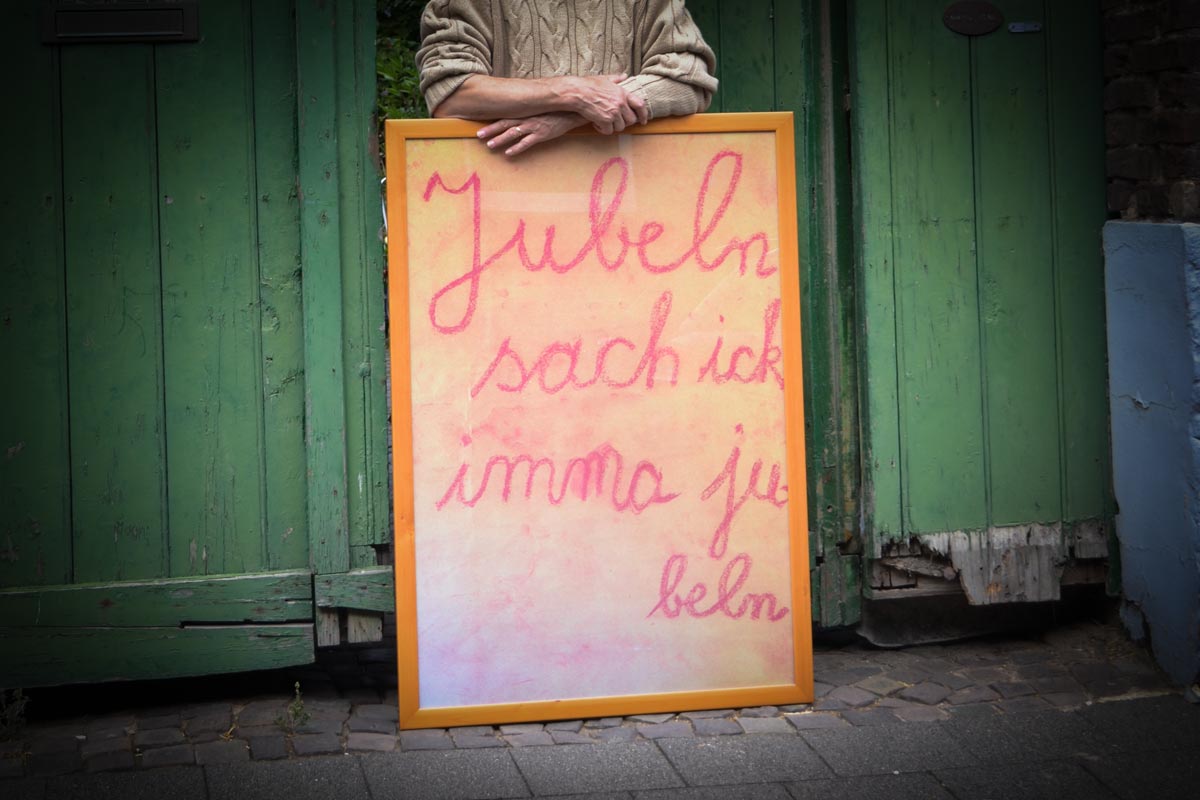 Jubeln
sach ick
imma ju-
beln